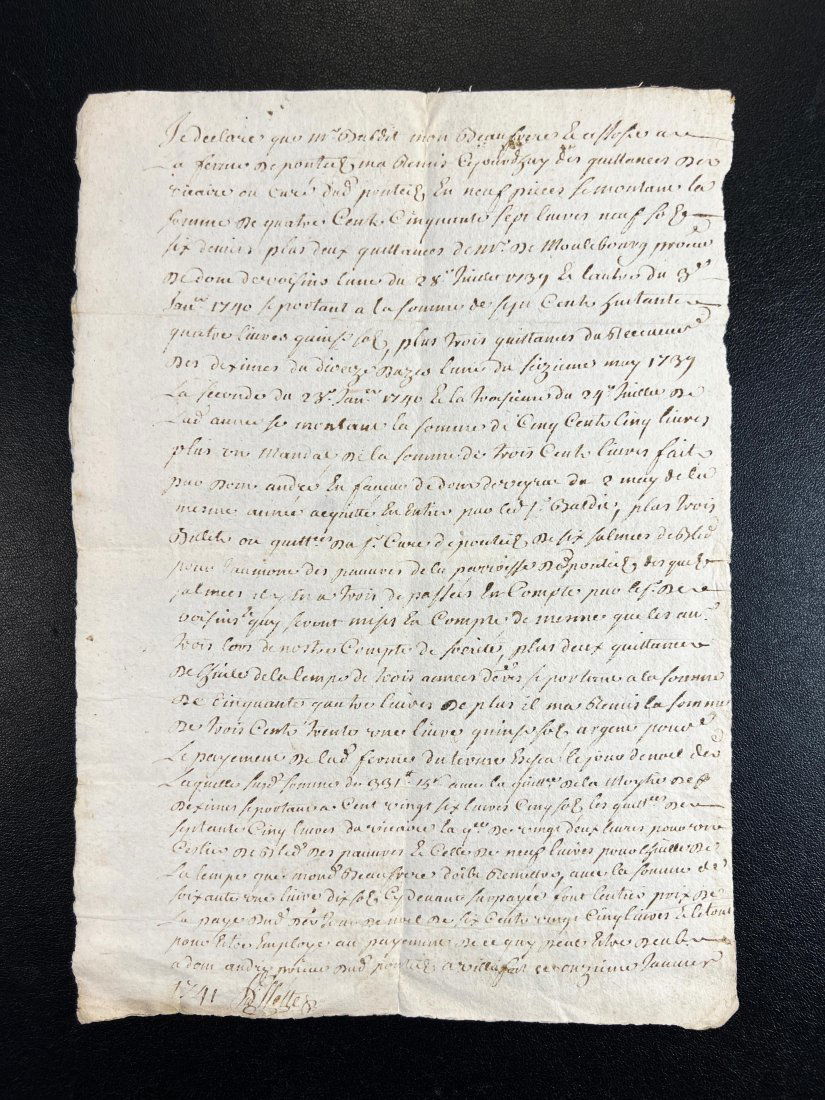 Je declare que mr Baldit mon Beaufrere et associe a
la ferme de ponteilz ma Remis Cejourdhuy des quittances de
vicaire ou curé dud ponteilz En neuf pieces se montant la
somme de quatre Cents Cinquante sept livres neuf solz
six deniers plus deux quittances de Mr. de Moulebourg
de dom devoisins lune du 28e Juillet 1739 Et lautre du 3e
Janer 1740 se portant a la somme de sept Cents huitante
quatre livres quinse solz, plus trois quittances du Receveur
des deximes du dioceze dazes lune du sizieme may 1739
La seconde du 23e Janer 1740 Et la troisieme du 24e Juillet de
Lad année se montant la somme de Cinq Cents Cinq livres
plus un Mandat de la somme de trois Cents livres fait
par Dom andre En faveur de dom deveyrac du 2 may de la
mesme année acquitté En Entier par led sr. Baldit, plus trois
Billets ou quittces du sr. Curé de ponteilz de six salmées de Bled
pour laumone des pauvres de la parroisse de ponteilz des quelz
salmées il y En a trois de passées En Compte par le sr. de
voisins quy seront mises En Compte de mesme que les au.
trois lors de nostre Compte de societé, plus deux quittances
de lhuile de la lempe de trois années se portant a la somme
de Cinquante quatre livres de plus il ma Remis la somme
de trois Cents trente une livre quinse solz argent pour
Le payement de lad. ferme du terme Escu le jour de noel
Laquelle susd. somme de 331lt 15s avec la quittce de la Moytié de
deximes se portant a Cent vingt six livres Cinq solz les quittces de
septante Cinq livres du vicaire la qce de vingt deux livres pour une
Cestie de Bled des pauvres Et Celle de neuf livres pour lhuille de
La lempe que mond. Beaufrere doit Remettre, avec la somme de
soixante une livre dix solz Cy devant surpayée font lentier prix de
La paye dud. de noel de six Cents vingt Cinq livres Et le tout
pour Estre Employé au payement de ce quy peut Estre deub
a dom andre prieur dud ponteilz a villefort ce onzieme Janvier
1741